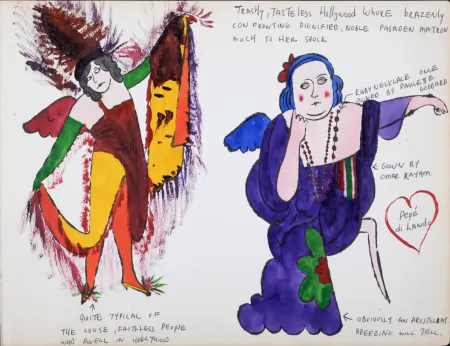 TRASHY, TASTELESS HOLLYWOOD WHORE BRAZENLY
CONFRONTING DIGNIFIED, NOBLE PASADEN MATRON
MUCH TO HER SHOCK
RUBY NECKLACE ONCE
OWNED BY PAULETTE
GODDARD
GOWN BY
OMAR KAYAM
PEPÉ
di LANDO
QUITE TYPICAL OF
THE LOOSE, FAITHLESS PEOPLE
WHO DWELL IN HOLLYWOOD
OBVIOUSLY AN ARISTOCRAT.
BREEDING WILL TELL.